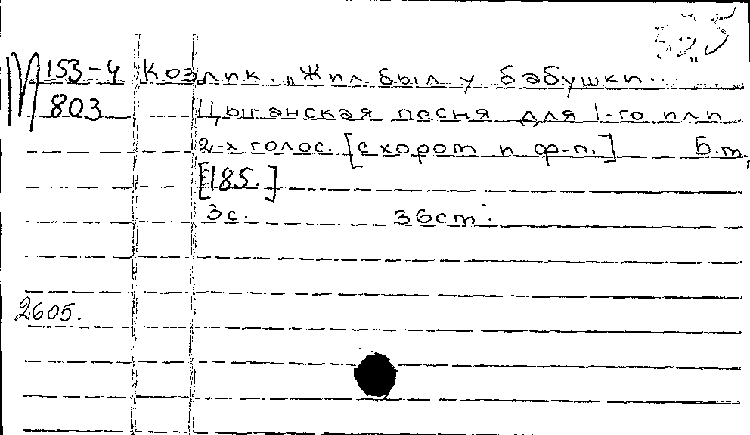 М 153-4 Козлик. „Жил был у бабушки...
803 Цыганская песня для 1-го или
2-х голос. [с хором и ф-п.] Б.м.,
[185.]
3с. 36см.
2605.